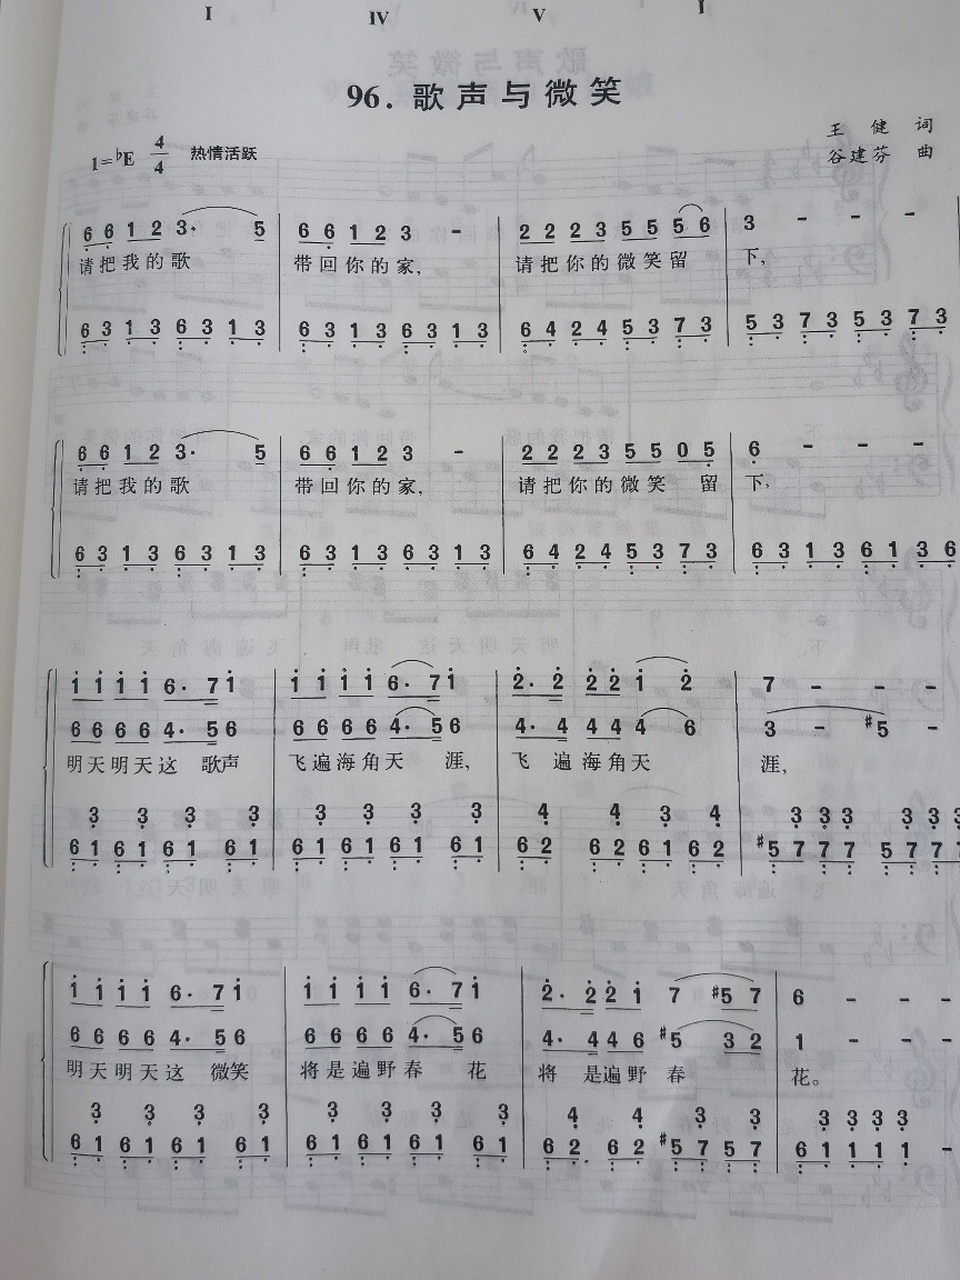 I IV V I
96. 歌声与微笑
王 健 词
1=♭E 4/4 热情活跃
谷建芬 曲
6 6 1 2 3· 5 | 6 6 1 2 3 - | 2 2 2 3 5 5 5 6 | 3 - - -
请把我的歌 带回你的家, 请把你的微笑留 下,
6 3 1 3 6 3 1 3 | 6 3 1 3 6 3 1 3 | 6 4 2 4 5 3 7 3 | 5 3 7 3 5 3 7 3
6 6 1 2 3· 5 | 6 6 1 2 3 - | 2 2 2 3 5 5 0 5 | 6 - - -
请把我的歌 带回你的家, 请把你的微笑 留 下,
6 3 1 3 6 3 1 3 | 6 3 1 3 6 3 1 3 | 6 4 2 4 5 3 7 3 | 6 3 1 3 6 1 3 6
1 1 1 1 6· 7 1 | 1 1 1 1 6· 7 1 | 2· 2 2 2 1 2 | 7 - - -
6 6 6 6 4· 5 6 | 6 6 6 6 4· 5 6 | 4· 4 4 4 4 6 | 3 - #5 -
明天明天这 歌声 飞遍海角天 涯, 飞 遍海角天 涯,
3 3 3 3 | 3 3 3 3 | 4 4 3 4 | 3 3 3 3 3 3
6 1 6 1 6 1 6 1 | 6 1 6 1 6 1 6 1 | 6 2 6 2 6 1 6 2 | #5 7 7 7 5 7 7 7
1 1 1 1 6· 7 1 | 1 1 1 1 6· 7 1 | 2· 2 2 1 7 #5 7 | 6 - - -
6 6 6 6 4· 5 6 | 6 6 6 6 4· 5 6 | 4· 4 4 6 #5 3 2 | 1 - - -
明天明天这 微笑 将是遍野春 花 将 是遍野 春 花。
3 3 3 3 | 3 3 3 3 | 4 4 3 3 | 3 3 3 3
6 1 6 1 6 1 6 1 | 6 1 6 1 6 1 6 1 | 6 2 6 2 #5 7 5 7 | 6 1 1 1 1 -